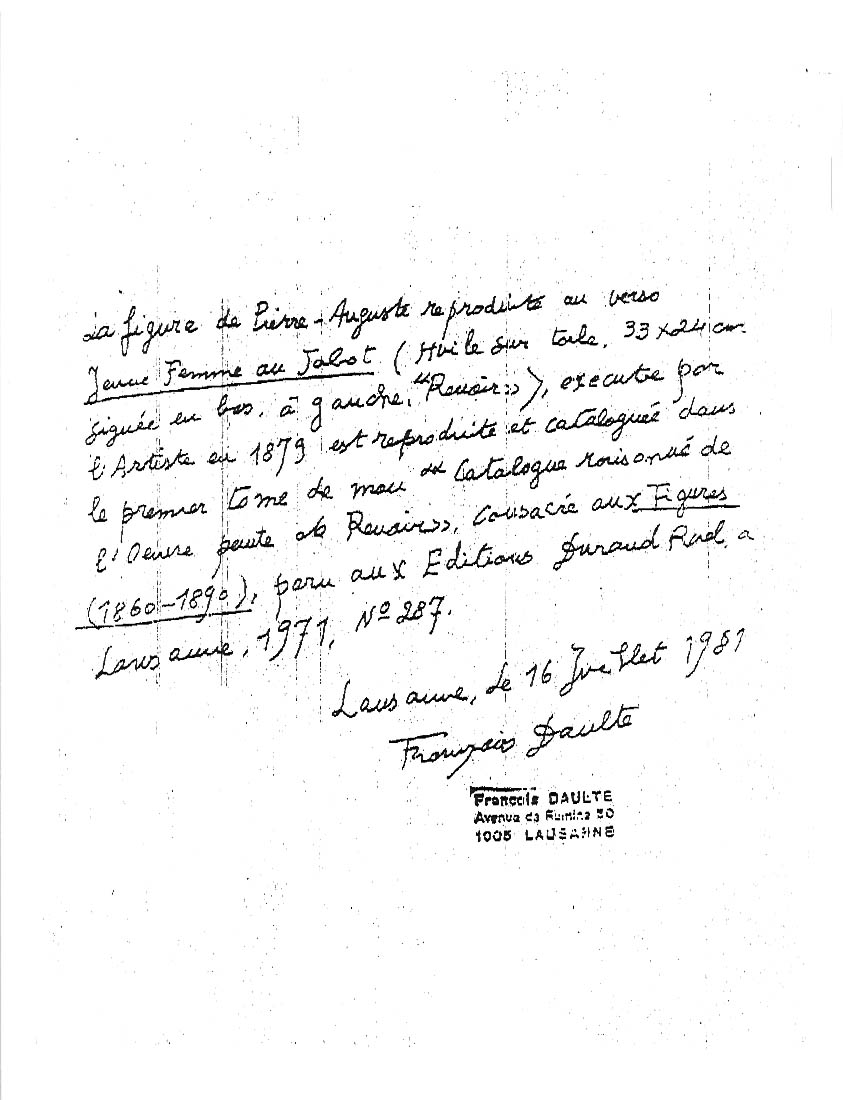 La figure de Pierre-Auguste reproduite au verso
Jeune Femme au Jabot (Huile sur toile, 33 x 24 cm
signée en bas, à gauche, "Renoir»), executée par
l'Artiste en 1879 est reproduite et cataloguée dans
le premier tome de mon « Catalogue raisonné de
l'Oeuvre peinte de Renoir», consacrée aux Figures
(1860-1890), paru aux Editions Durand Ruel, a
Lausanne, 1971, No 287.
Lausanne, le 16 Juillet 1981
François Daulte
François DAULTE
Avenue de Rumine 50
1005 LAUSANNE